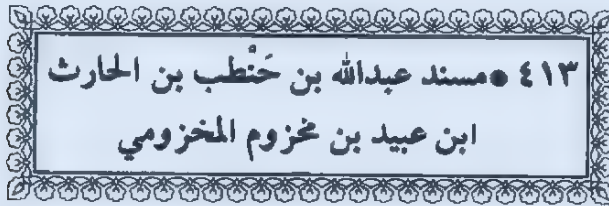 ٤١٣ • مسند عبدالله بن حَنْطب بن الحارث
ابن عبيد بن مخزوم المخزومي